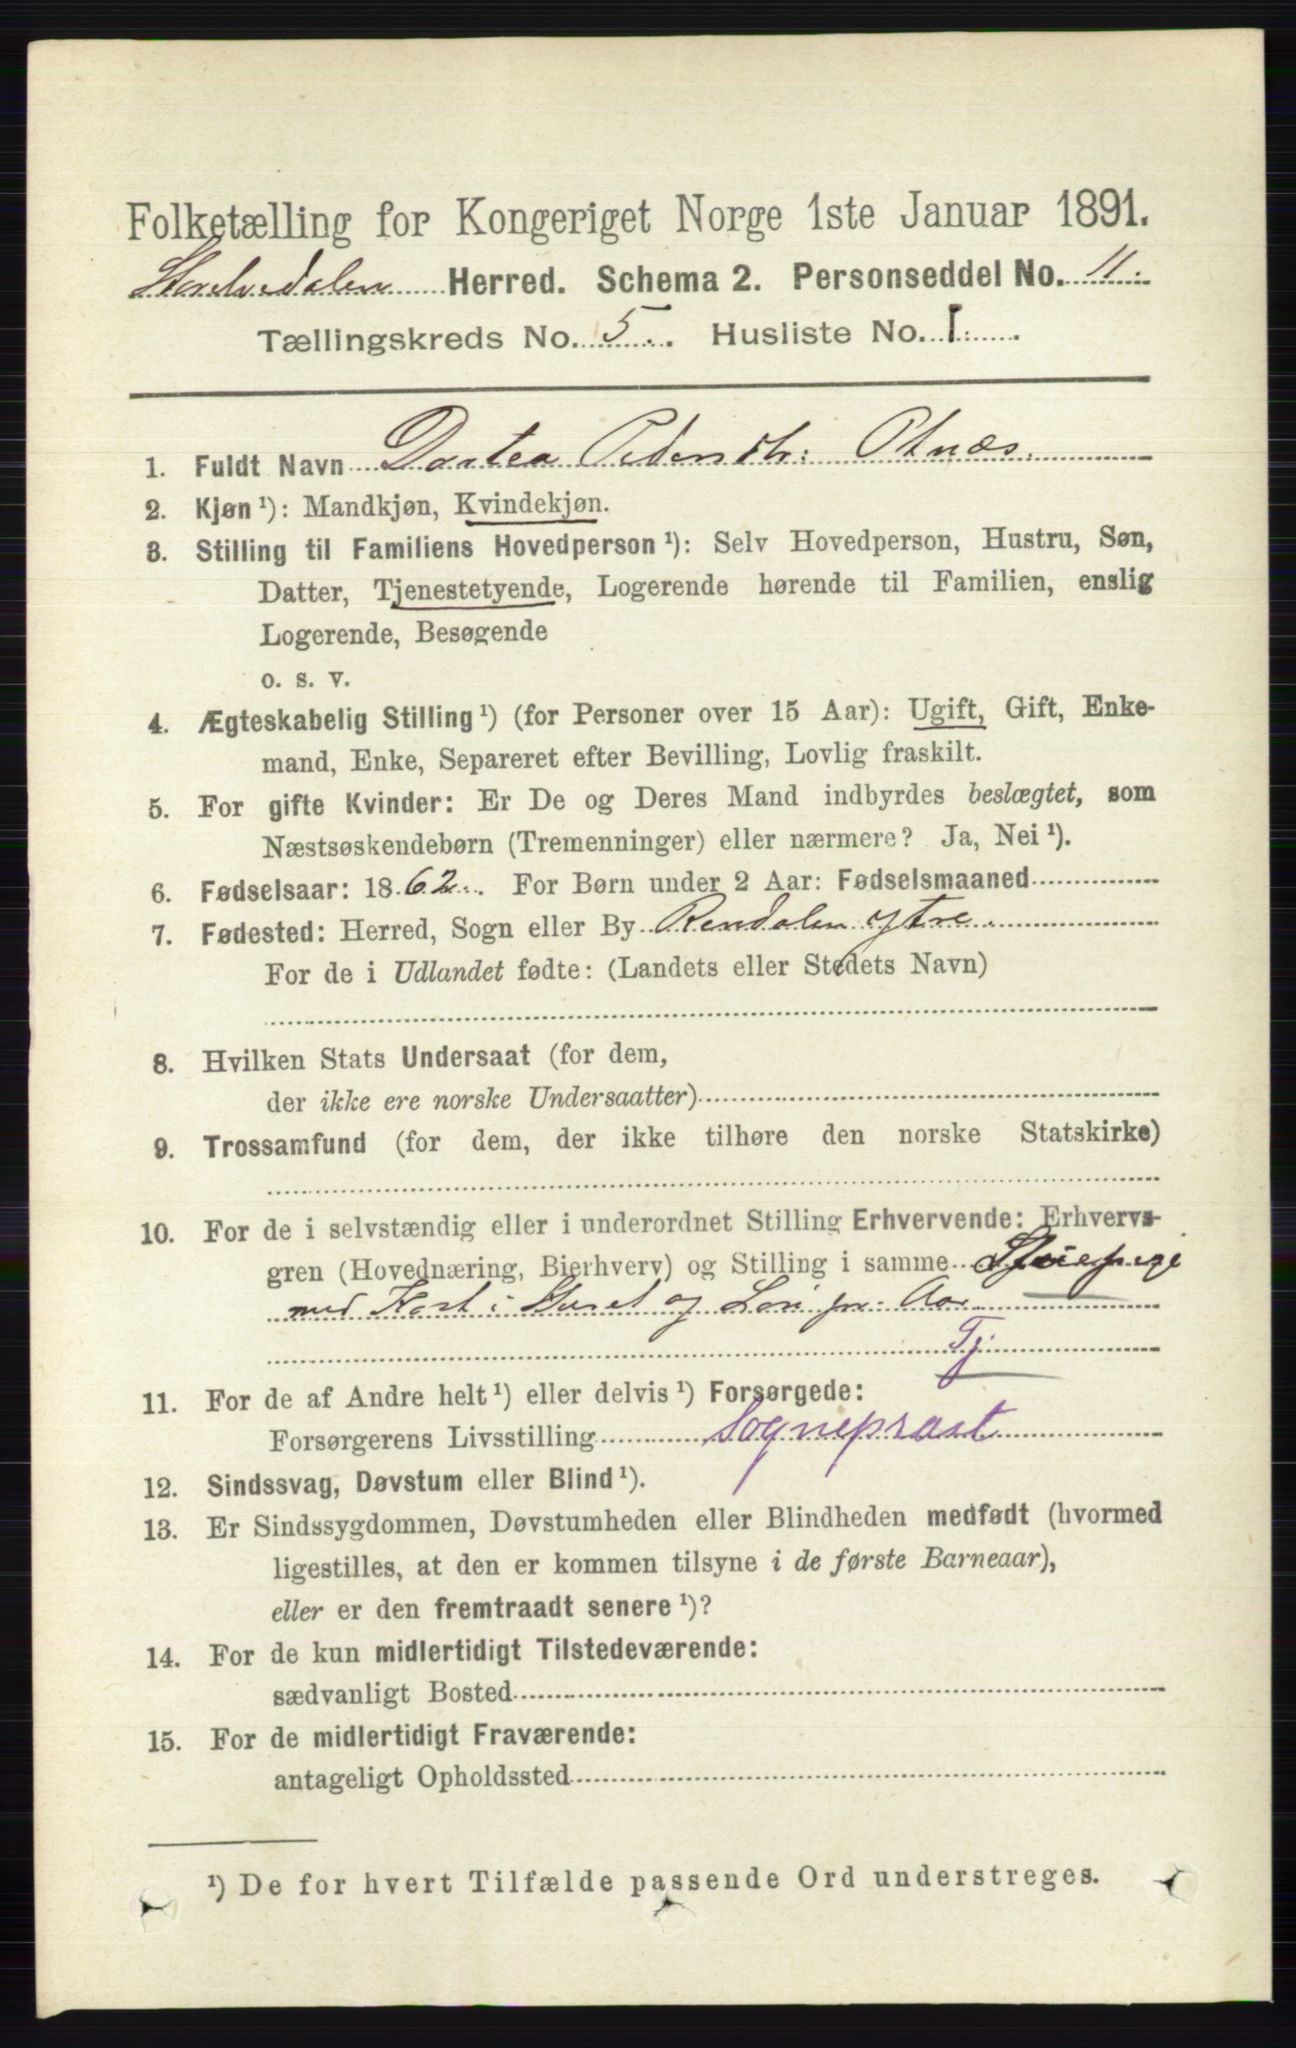 Folketælling for Kongeriget Norge 1ste Januar 1891.
Storelvedalen Herred. Schema 2. Personseddel No. 11.
Tællingskreds No. 5. Husliste No. 1.
1. Fuldt Navn Dortea Pedersdtr: Otnæs.
2. Kjøn ¹): Mandkjøn, Kvindekjøn.
3. Stilling til Familiens Hovedperson ¹): Selv Hovedperson, Hustru, Søn,
Datter, Tjenestetyende, Logerende hørende til Familien, enslig
Logerende, Besøgende
o. s. v.
4. Ægteskabelig Stilling ¹) (for Personer over 15 Aar): Ugift, Gift, Enke-
mand, Enke, Separeret efter Bevilling, Lovlig fraskilt.
5. For gifte Kvinder: Er De og Deres Mand indbyrdes beslægtet, som
Næstsøskendebørn (Tremenninger) eller nærmere? Ja, Nei ¹).
6. Fødselsaar: 1862. For Børn under 2 Aar: Fødselsmaaned
7. Fødested: Herred, Sogn eller By Rendalen ytre.
For de i Udlandet fødte: (Landets eller Stedets Navn)
8. Hvilken Stats Undersaat (for dem,
der ikke ere norske Undersaatter)
9. Trossamfund (for dem, der ikke tilhøre den norske Statskirke)
10. For de i selvstændig eller i underordnet Stilling Erhvervende: Erhvervs-
gren (Hovednæring, Bierhverv) og Stilling i samme
med Kost i Huset og Løn pr. Aar
Tj.
11. For de af Andre helt ¹) eller delvis ¹) Forsørgede:
Forsørgerens Livsstilling Sognepræst
12. Sindssvag, Døvstum eller Blind ¹).
13. Er Sindssygdommen, Døvstumheden eller Blindheden medfødt (hvormed
ligestilles, at den er kommen tilsyne i de første Barneaar),
eller er den fremtraadt senere ¹)?
14. For de kun midlertidigt Tilstedeværende:
sædvanligt Bosted
15. For de midlertidigt Fraværende:
antageligt Opholdssted
¹) De for hvert Tilfælde passende Ord understreges.